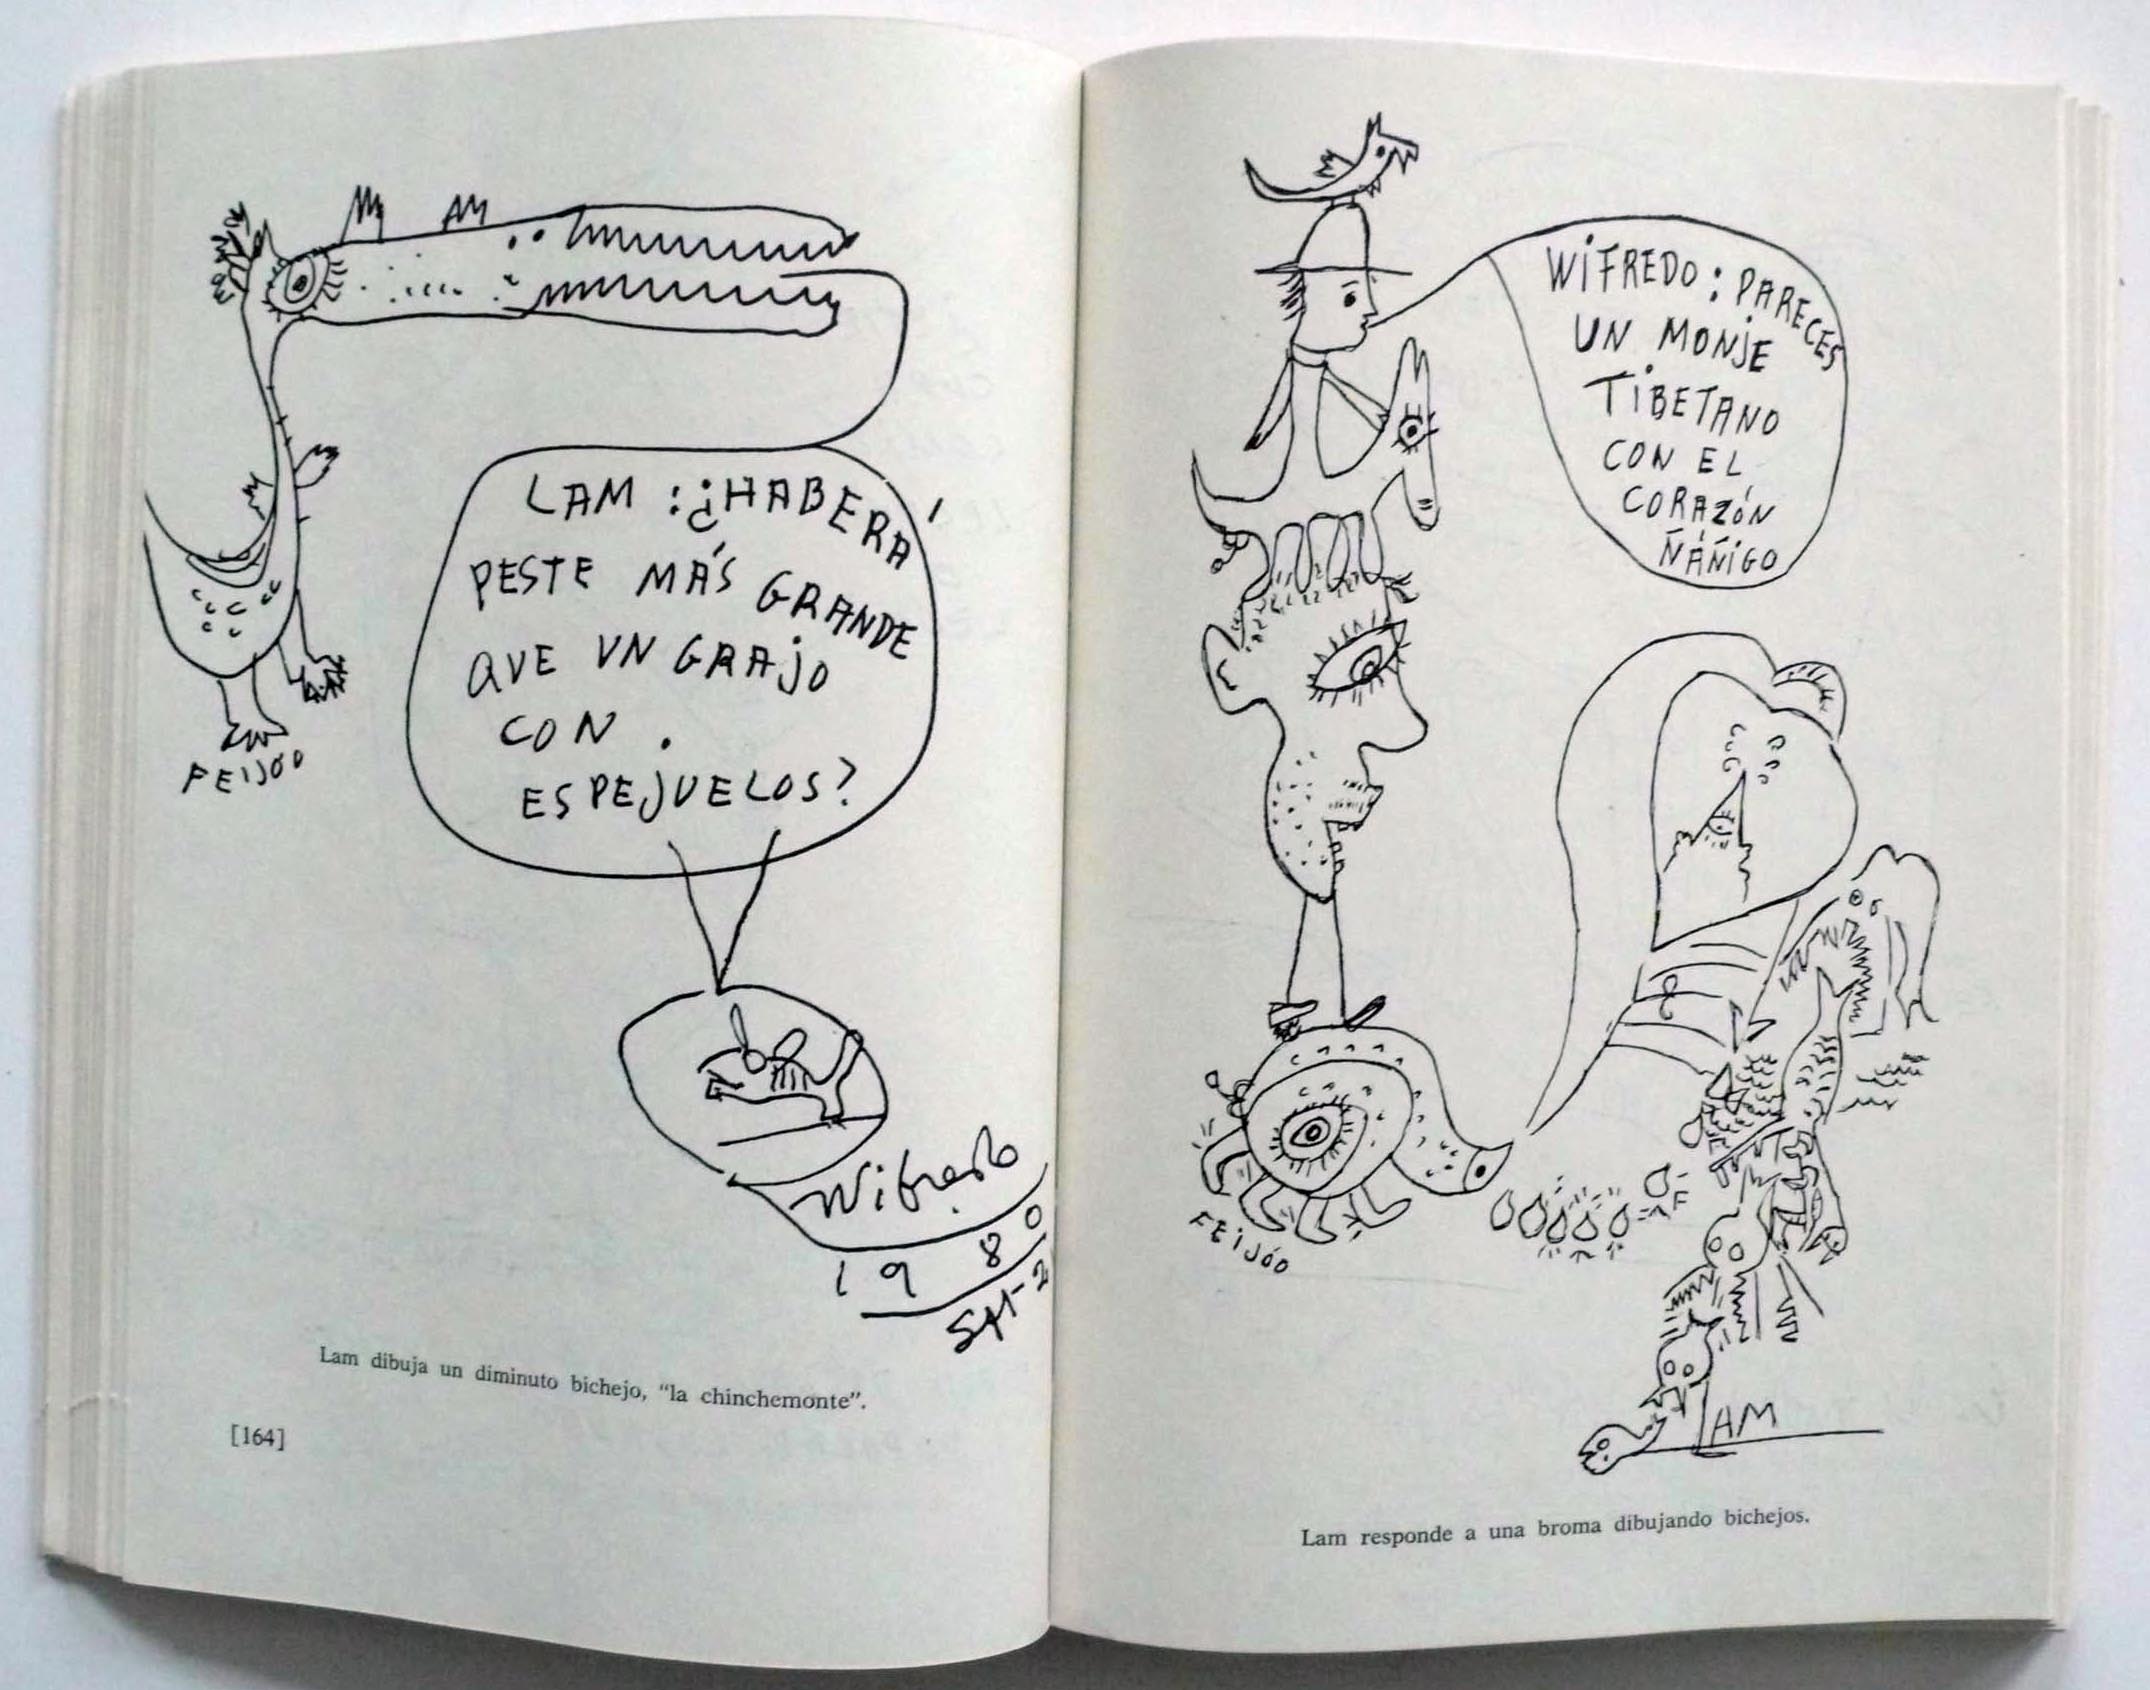 LAM : ¿HABERÁ
PESTE MÁS GRANDE
QUE UN GRAJO
CON
ESPEJUELOS?
FEIJÓO
Wifredo
1980
5-11-2
Lam dibuja un diminuto bichejo, “la chinchemonte”.
[164]
WIFREDO : PARECES
UN MONJE
TIBETANO
CON EL
CORAZÓN
ÑÁÑIGO
F
FEIJÓO
LAM
Lam responde a una broma dibujando bichejos.